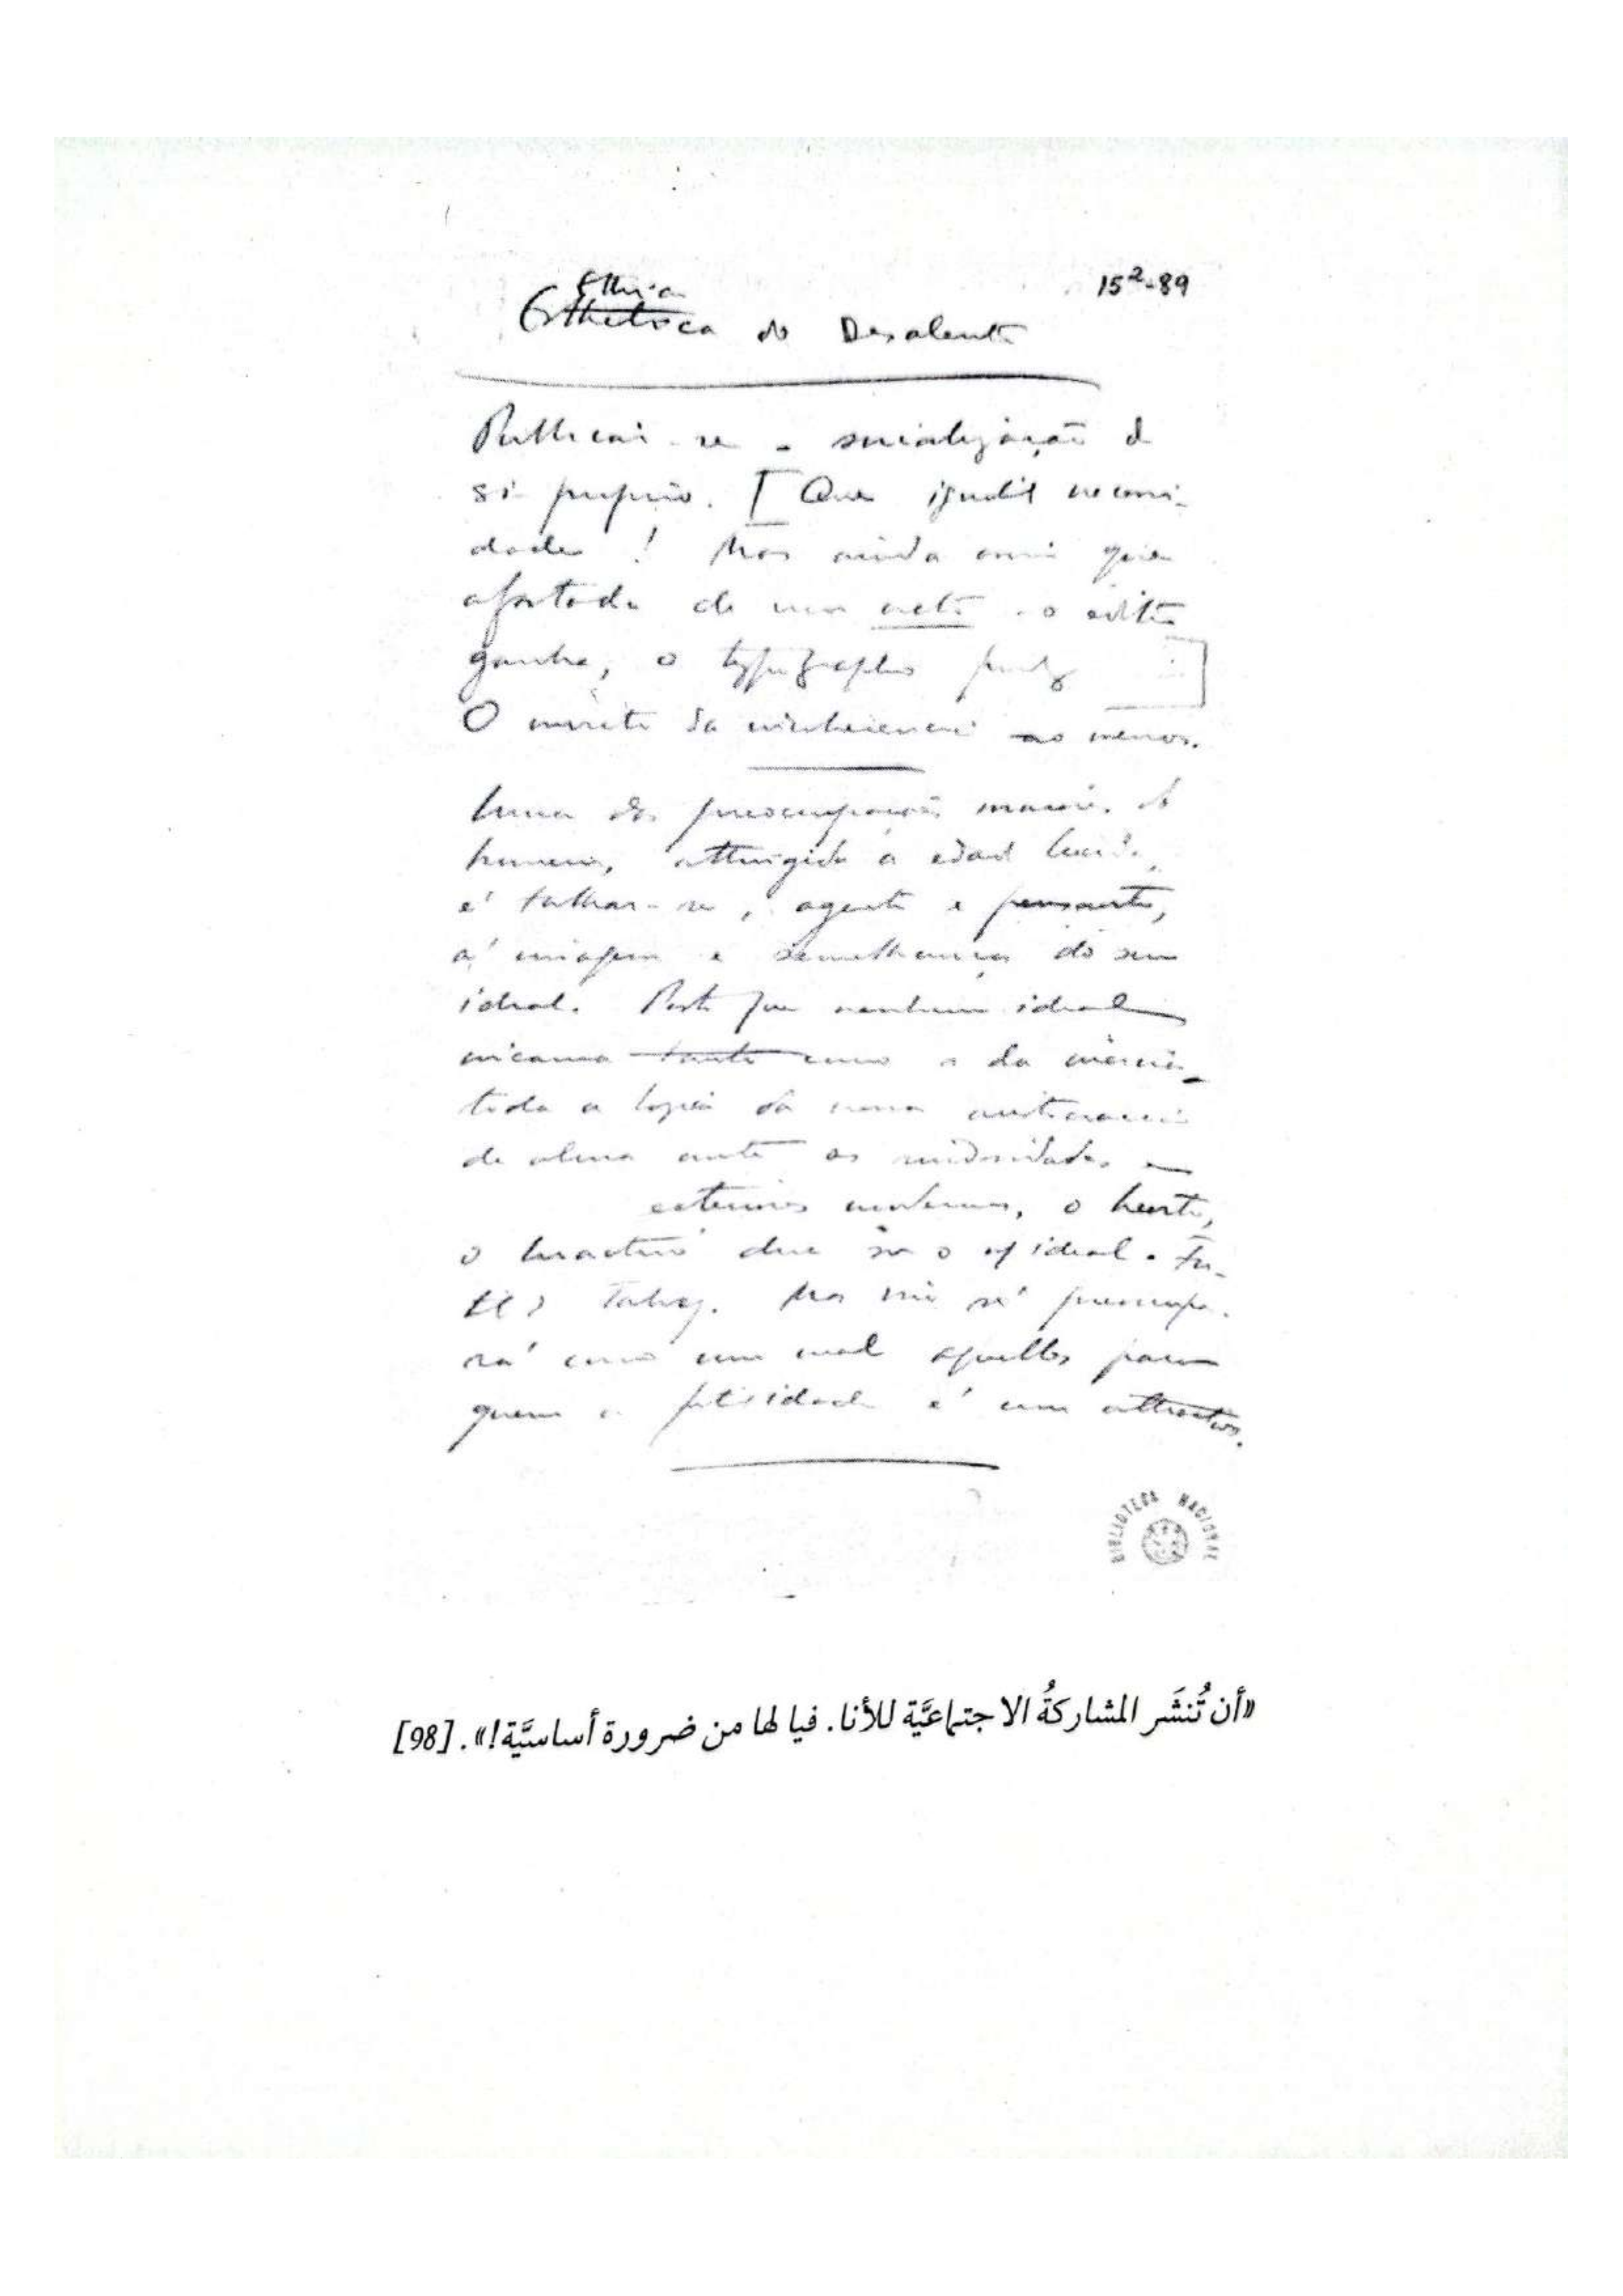 Ethica
15²-89
Esthetica do Desalento
Publicar-se - socialização de
si proprio. [Que ignobil necessi-
dade! Mas ainda assim que
afastada de um acto - o editor
ganha, o typographo produz
O merito da incoherencia ao menos.
Uma das preocupações maiores do
homem, attingida a edade lucida,
é talhar-se, agente e pensante,
á imagem e semelhança do seu
ideal. Posto que nenhum ideal
incarna tanto como o da inercia
toda a logica da nossa aristocracia
de alma ante as ruidosidades e
exteriores modernas, o Inerte,
o Inactivo deve ser o nosso ideal. Fu-
til? Talvez. Mas isso só preocupa-
rá como um mal aquelles para
quem a futilidade é um attractivo.
BIBLIOTECA NACIONAL
«أن تُنشَر المشاركةُ الاجتماعيَّة للأنا. فيا لها من ضرورة أساسيَّة!». [98]